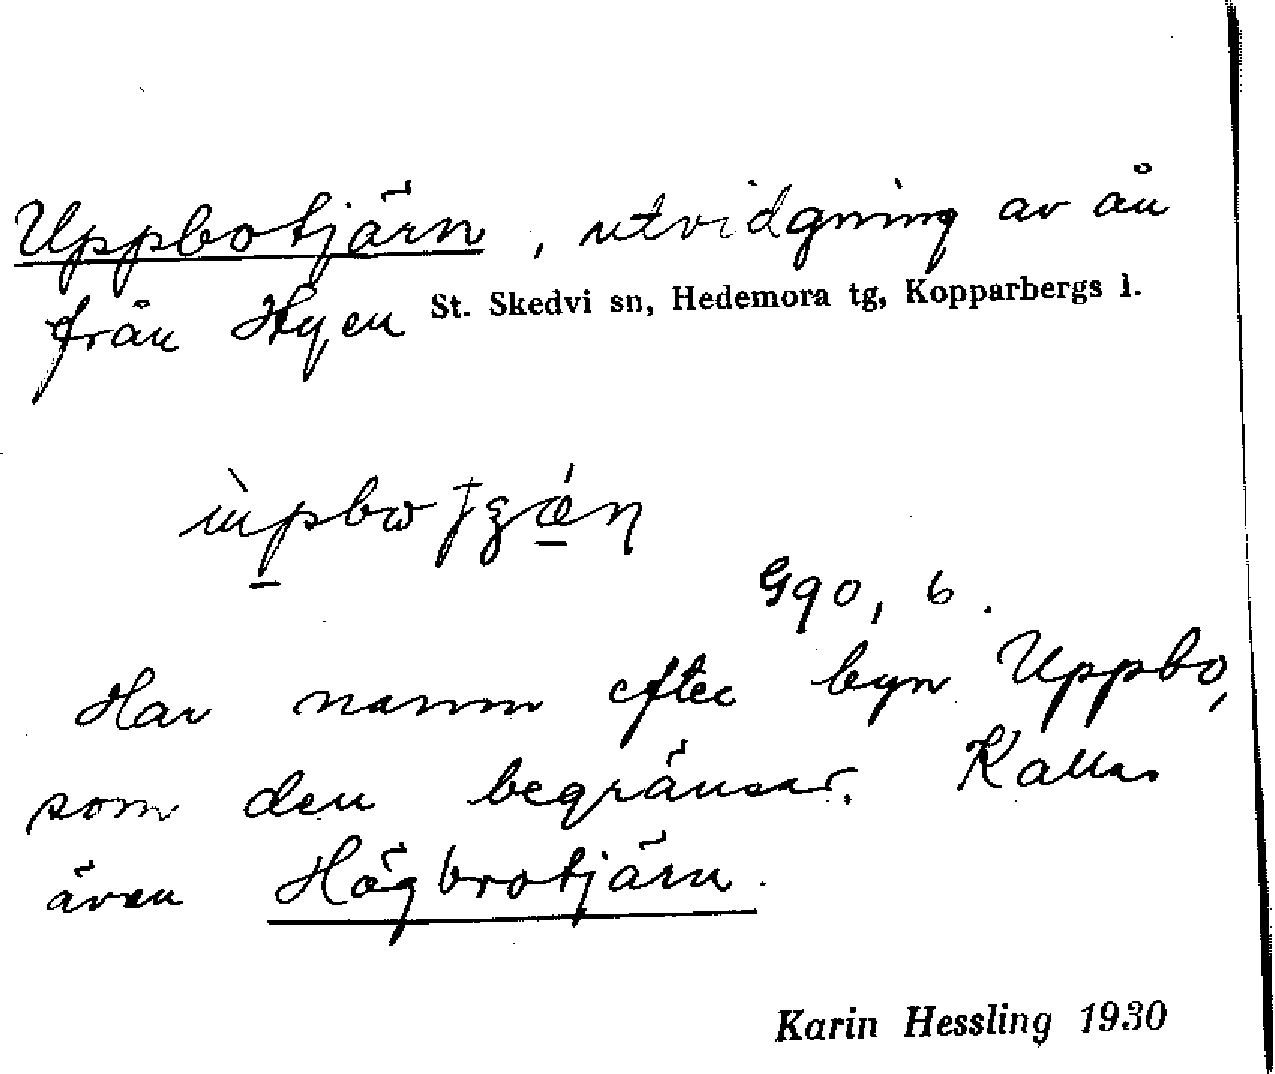 Uppbotjärn, utvidgning av ån
från Hyen St. Skedvi sn, Hedemora tg, Kopparbergs l.
Har namn efter byn Uppbo,
som den begränsar. Kallas
även Högbrotjärn.
Karin Hessling 1930